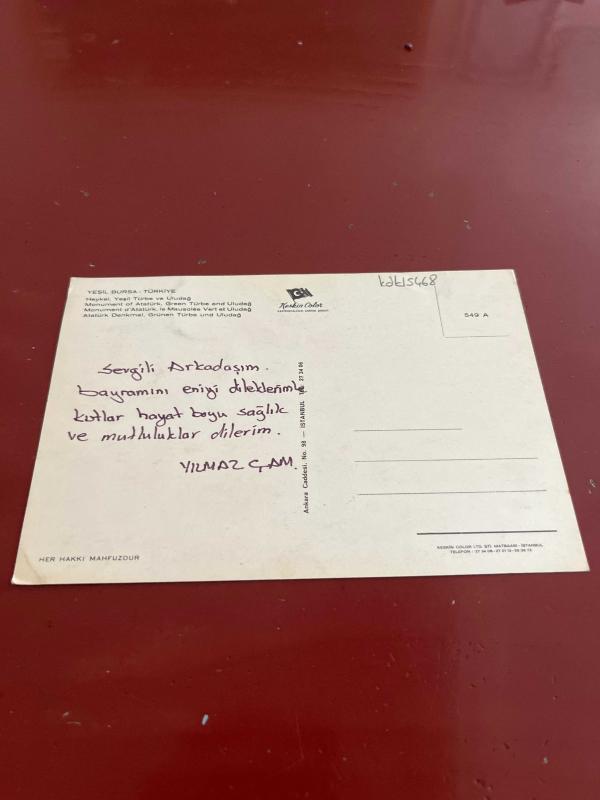 YEŞİL BURSA - TÜRKİYE
Heykel, Yeşil Türbe ve Uludağ
Monument of Atatürk, Green Türbe and Uludağ
Monument d'Atatürk, le Mausolée Vert et Uludağ
Atatürk Denkmal, Grünen Türbe und Uludağ
Keskin Color
549 A
Sevgili Arkadaşım.
bayramını eniyi dileklerimle
kutlar hayat boyu sağlık
ve mutluluklar dilerim.
YILMAZ ÇAM.
Ankara Caddesi, No. 98 — İSTANBUL Tel. 27 34 06
HER HAKKI MAHFUZDUR
KESKİN COLOR LTD. ŞTİ. MATBAASI - İSTANBUL